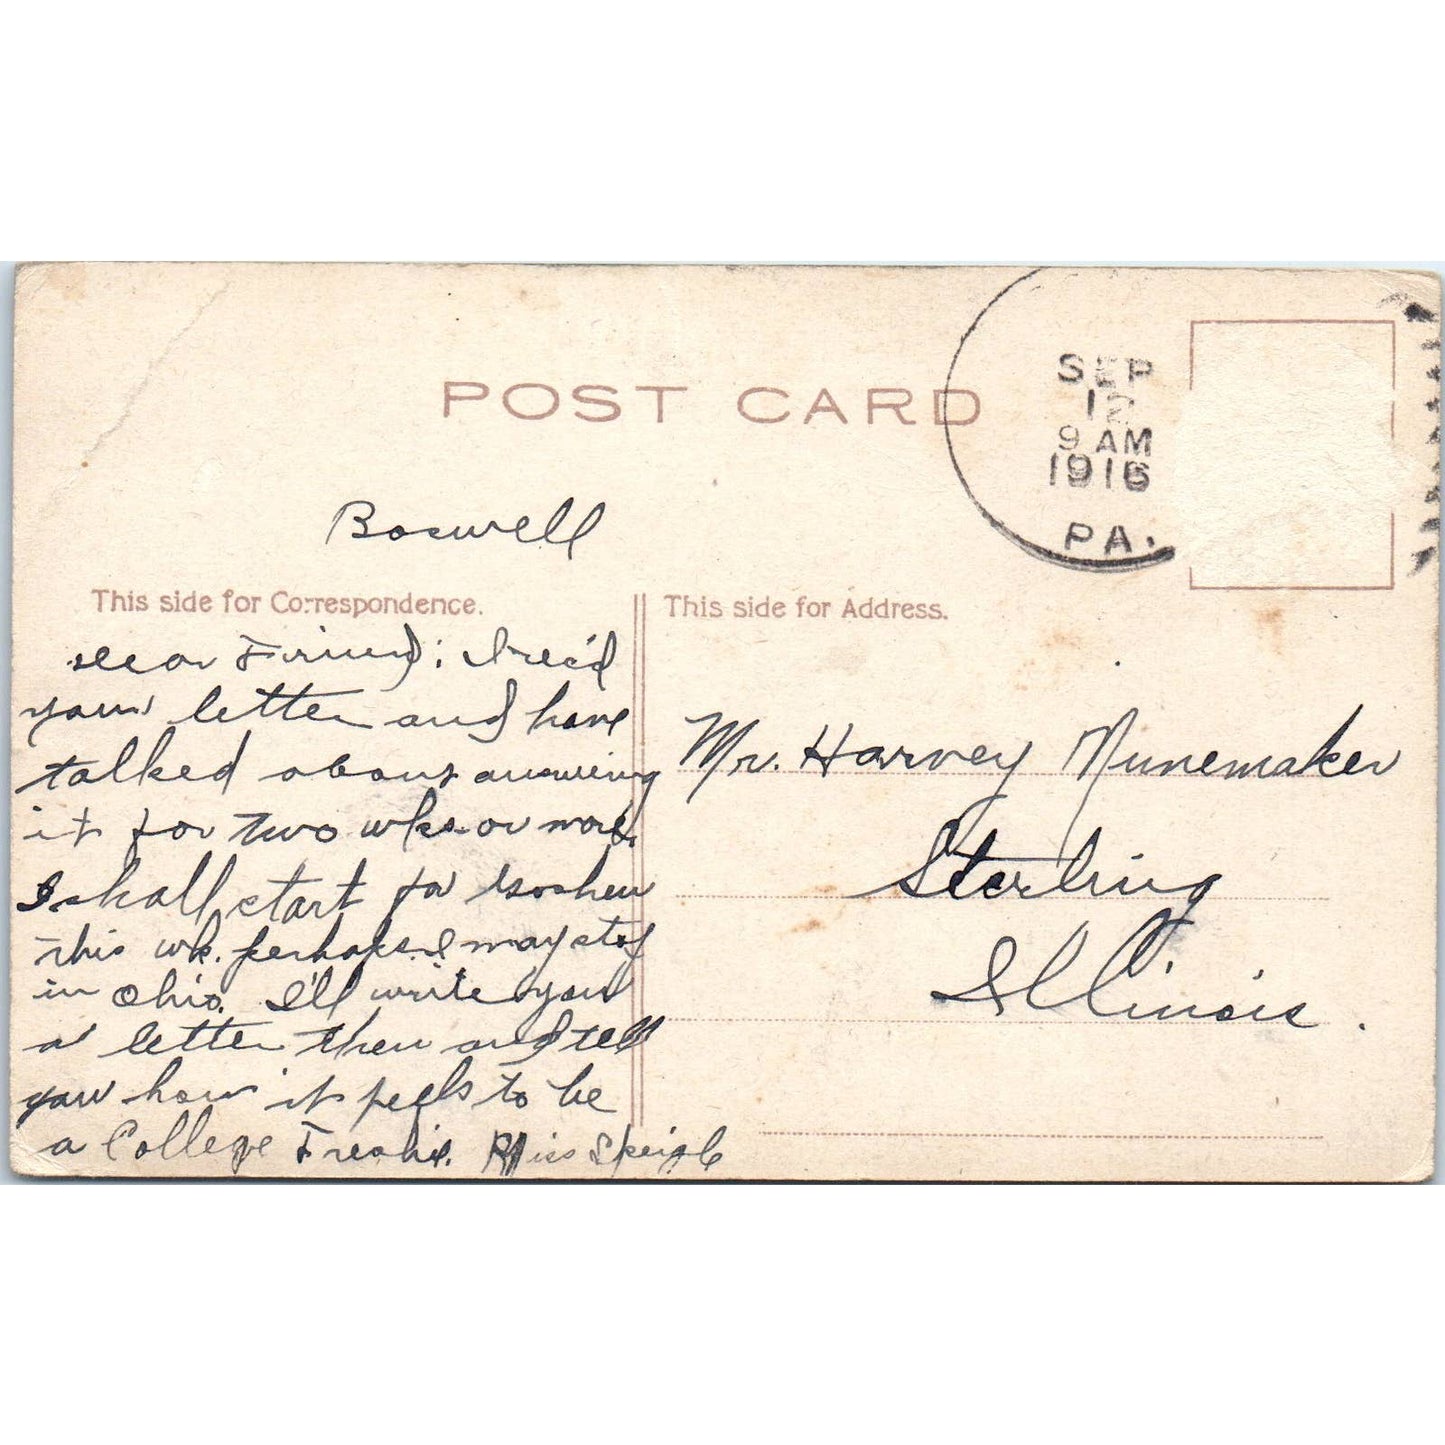 POST CARD
SEP
12
9 AM
1916
PA.
Boswell
This side for Correspondence.
Dear Friend: I rec'd
your letter and have
talked about answering
it for two wks. or more.
I shall start for Goshen
this wk. perhaps. I may stop
in Ohio. I'll write you
a letter then and tell
you how it feels to be
a College Freshie. Miss
This side for Address.
Mr. Harvey Nunemaker
Sterling
Illinois.